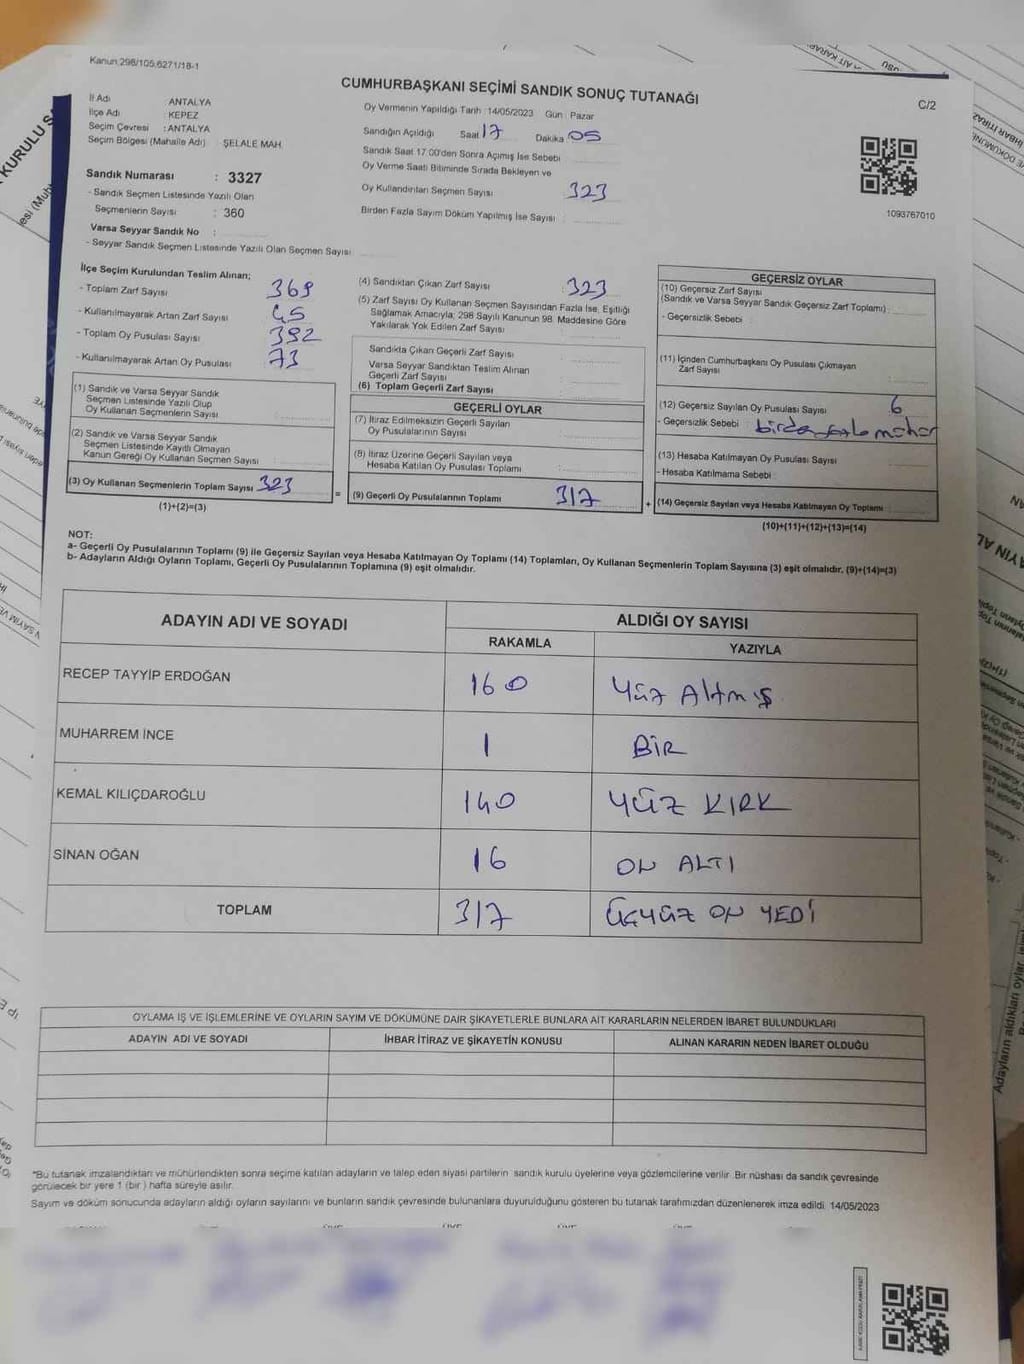 Kanun,298/105,6271/18-1
CUMHURBAŞKANI SEÇİMİ SANDIK SONUÇ TUTANAĞI
C/2
İl Adı : ANTALYA
İlçe Adı : KEPEZ
Seçim Çevresi : ANTALYA
Seçim Bölgesi (Mahalle Adı) : ŞELALE MAH.
Oy Vermenin Yapıldığı Tarih :14/05/2023 Gün : Pazar
Sandığın Açıldığı Saat 17 Dakika 05
Sandık Saat 17:00'den Sonra Açımış İse Sebebi
Oy Verme Saati Bitiminde Sırada Bekleyen ve
Oy Kullandırılan Seçmen Sayısı 323
Birden Fazla Sayım Döküm Yapılmış İse Sayısı
1093767010
Sandık Numarası : 3327
- Sandık Seçmen Listesinde Yazılı Olan
Seçmenlerin Sayısı : 360
Varsa Seyyar Sandık No :
- Seyyar Sandık Seçmen Listesinde Yazılı Olan Seçmen Sayısı
İlçe Seçim Kurulundan Teslim Alınan;
- Toplam Zarf Sayısı 369
- Kullanılmayarak Artan Zarf Sayısı 45
- Toplam Oy Pusulası Sayısı 392
- Kullanılmayarak Artan Oy Pusulası 73
(1) Sandık ve Varsa Seyyar Sandık
Seçmen Listesinde Yazılı Olup
Oy Kullanan Seçmenlerin Sayısı
(2) Sandık ve Varsa Seyyar Sandık
Seçmen Listesinde Kayıtlı Olmayan
Kanun Gereği Oy Kullanan Seçmen Sayısı
(3) Oy Kullanan Seçmenlerin Toplam Sayısı 323
(1)+(2)=(3)
(4) Sandıktan Çıkan Zarf Sayısı : 323
(5) Zarf Sayısı Oy Kullanan Seçmen Sayısından Fazla İse, Eşitliği
Sağlamak Amacıyla; 298 Sayılı Kanunun 98. Maddesine Göre
Yakılarak Yok Edilen Zarf Sayısı
Sandıkta Çıkan Geçerli Zarf Sayısı
Varsa Seyyar Sandıktan Teslim Alınan
Geçerli Zarf Sayısı
(6) Toplam Geçerli Zarf Sayısı
GEÇERLİ OYLAR
(7) İtiraz Edilmeksizin Geçerli Sayılan
Oy Pusulalarının Sayısı
(8) İtiraz Üzerine Geçerli Sayılan veya
Hesaba Katılan Oy Pusulası Toplamı
= (9) Geçerli Oy Pusulalarının Toplamı 317
GEÇERSİZ OYLAR
(10) Geçersiz Zarf Sayısı
(Sandık ve Varsa Seyyar Sandık Geçersiz Zarf Toplamı) :
- Geçersizlik Sebebi :
(11) İçinden Cumhurbaşkanı Oy Pusulası Çıkmayan
Zarf Sayısı
(12) Geçersiz Sayılan Oy Pusulası Sayısı 6
- Geçersizlik Sebebi : birden fazla mühür
(13) Hesaba Katılmayan Oy Pusulası Sayısı
- Hesaba Katılmama Sebebi :
+ (14) Geçersiz Sayılan veya Hesaba Katılmayan Oy Toplamı
(10)+(11)+(12)+(13)=(14)
NOT:
a- Geçerli Oy Pusulalarının Toplamı (9) ile Geçersiz Sayılan veya Hesaba Katılmayan Oy Toplamı (14) Toplamları, Oy Kullanan Seçmenlerin Toplam Sayısına (3) eşit olmalıdır. (9)+(14)=(3)
b- Adayların Aldığı Oyların Toplamı, Geçerli Oy Pusulalarının Toplamına (9) eşit olmalıdır.
ADAYIN ADI VE SOYADI ALDIĞI OY SAYISI
RAKAMLA YAZIYLA
RECEP TAYYİP ERDOĞAN 160 Yüz Altmış
MUHARREM İNCE 1 BİR
KEMAL KILIÇDAROĞLU 140 YÜZ KIRK
SİNAN OĞAN 16 ON ALTI
TOPLAM 317 ÜÇYÜZ ON YEDİ
OYLAMA İŞ VE İŞLEMLERİNE VE OYLARIN SAYIM VE DÖKÜMÜNE DAİR ŞİKAYETLERLE BUNLARA AİT KARARLARIN NELERDEN İBARET BULUNDUKLARI
ADAYIN ADI VE SOYADI İHBAR İTİRAZ VE ŞİKAYETİN KONUSU ALINAN KARARIN NEDEN İBARET OLDUĞU
*Bu tutanak imzalandıktan ve mühürlendikten sonra seçime katılan adayların ve talep eden siyasi partilerin sandık kurulu üyelerine veya gözlemcilerine verilir. Bir nüshası da sandık çevresinde
görülecek bir yere 1 (bir) hafta süreyle asılır.
Sayım ve döküm sonucunda adayların aldığı oyların sayılarını ve bunların sandık çevresinde bulunanlara duyurulduğunu gösteren bu tutanak tarafımızdan düzenlenerek imza edildi. 14/05/2023